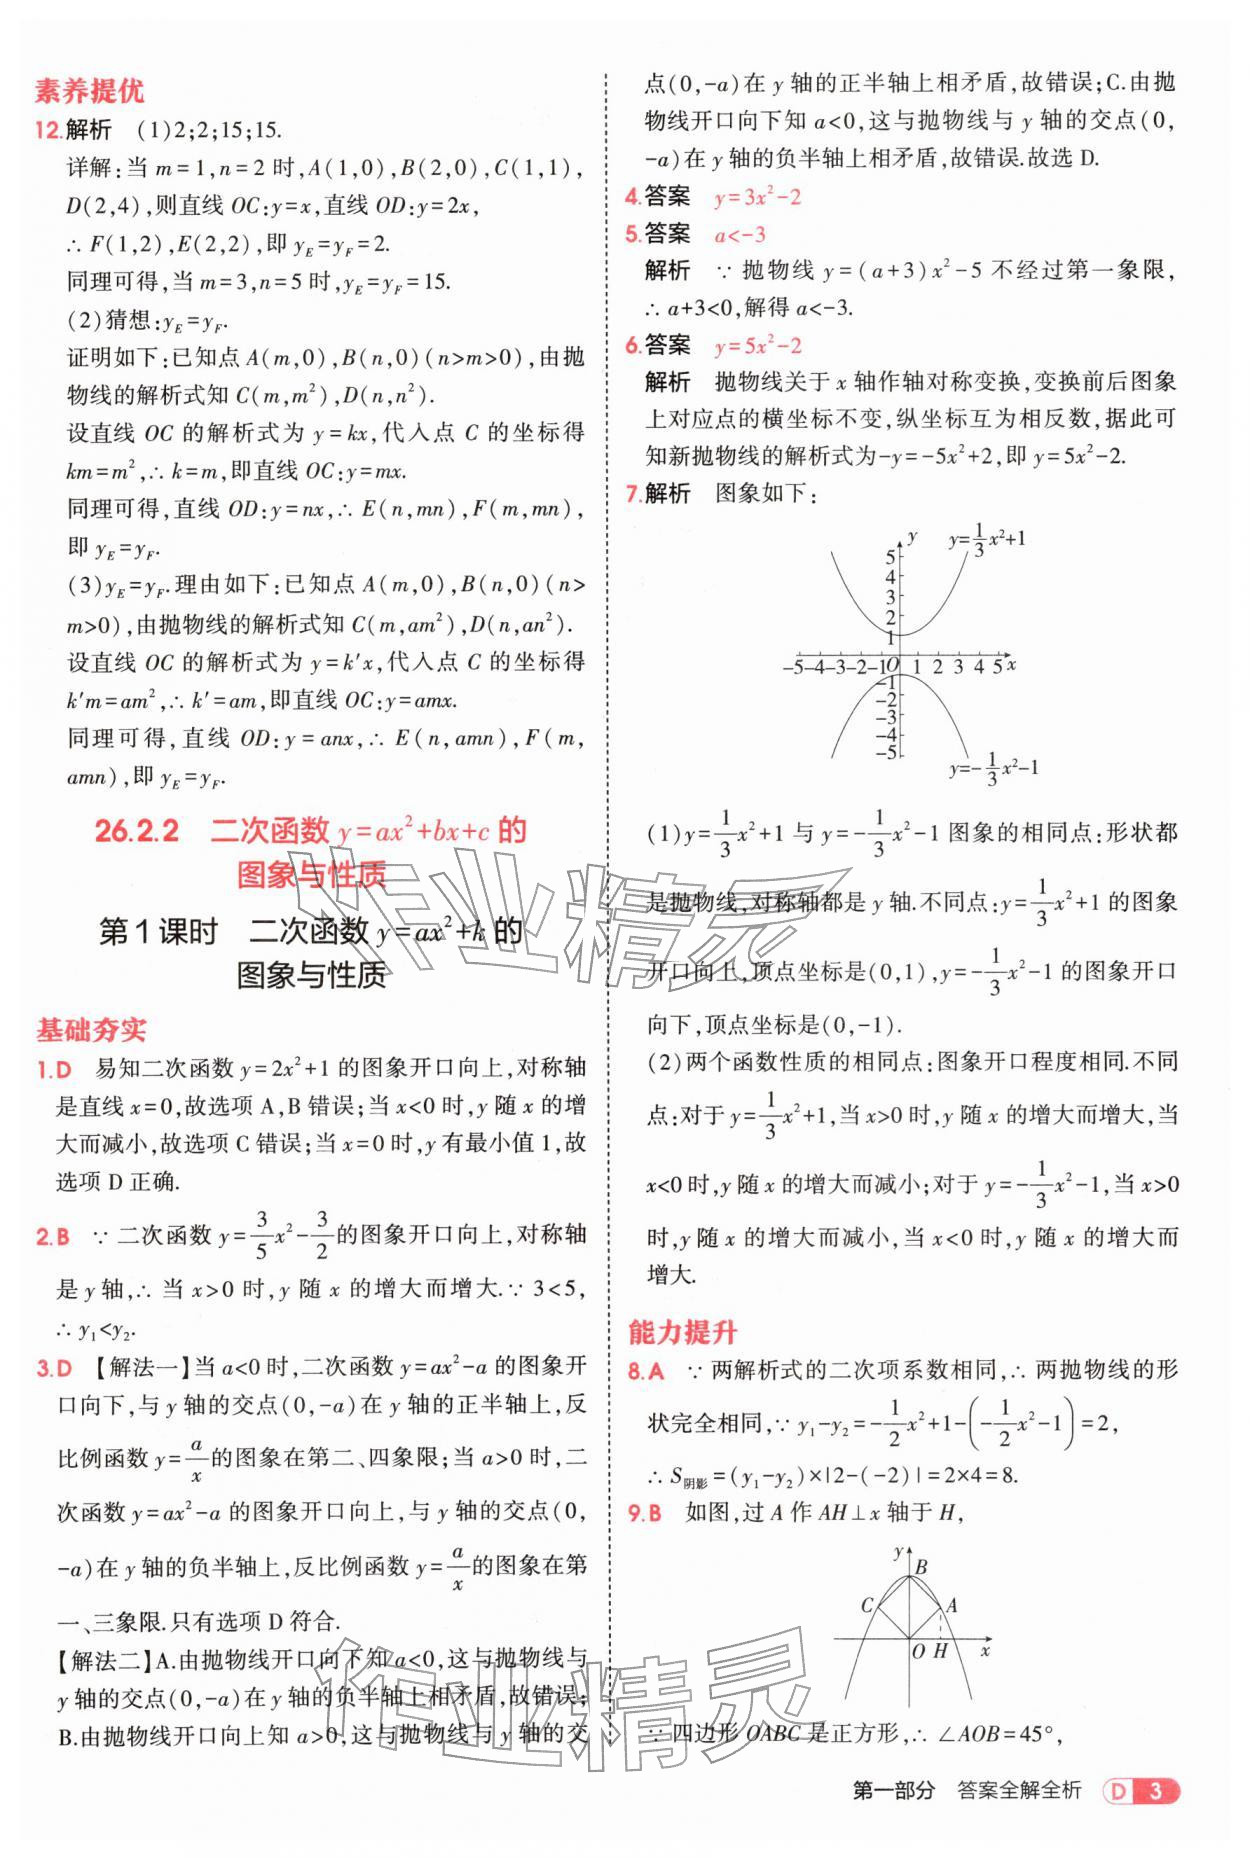 素养提优
12.解析 (1)2;2;15;15.
详解:当 m=1,n=2 时,A(1,0),B(2,0),C(1,1),
D(2,4),则直线 OC:y=x,直线 OD:y=2x,
∴ F(1,2),E(2,2),即 y_E=y_F=2.
同理可得,当 m=3,n=5 时,y_E=y_F=15.
(2)猜想:y_E=y_F.
证明如下:已知点 A(m,0),B(n,0)(n>m>0),由抛
物线的解析式知 C(m,m²),D(n,n²).
设直线 OC 的解析式为 y=kx,代入点 C 的坐标得
km=m²,∴ k=m,即直线 OC:y=mx.
同理可得,直线 OD:y=nx,∴ E(n,mn),F(m,mn),
即 y_E=y_F.
(3)y_E=y_F.理由如下:已知点 A(m,0),B(n,0)(n>
m>0),由抛物线的解析式知 C(m,am²),D(n,an²).
设直线 OC 的解析式为 y=k′x,代入点 C 的坐标得
k′m=am²,∴ k′=am,即直线 OC:y=amx.
同理可得,直线 OD:y=anx,∴ E(n,amn),F(m,
amn),即 y_E=y_F.
26.2.2 二次函数 y=ax²+bx+c 的
图象与性质
第1课时 二次函数 y=ax²+k 的
图象与性质
基础夯实
1.D 易知二次函数 y=2x²+1 的图象开口向上,对称轴
是直线 x=0,故选项 A,B 错误;当 x<0 时,y 随 x 的增
大而减小,故选项 C 错误;当 x=0 时,y 有最小值 1,故
选项 D 正确.
2.B ∵ 二次函数 y=3/5x²-3/2的图象开口向上,对称轴
是 y 轴,∴ 当 x>0 时,y 随 x 的增大而增大.∵ 3<5,
∴ y₁<y₂.
3.D 【解法一】当 a<0 时,二次函数 y=ax²-a 的图象开
口向下,与 y 轴的交点(0,-a)在 y 轴的正半轴上,反
比例函数 y=a/x的图象在第二、四象限;当 a>0 时,二
次函数 y=ax²-a 的图象开口向上,与 y 轴的交点(0,
-a)在 y 轴的负半轴上,反比例函数 y=a/x的图象在第
一、三象限.只有选项 D 符合.
【解法二】A.由抛物线开口向下知 a<0,这与抛物线与
y 轴的交点(0,-a)在 y 轴的负半轴上相矛盾,故错误;
B.由抛物线开口向上知 a>0,这与抛物线与 y 轴的交
点(0,-a)在 y 轴的正半轴上相矛盾,故错误;C.由抛
物线开口向下知 a<0,这与抛物线与 y 轴的交点(0,
-a)在 y 轴的负半轴上相矛盾,故错误.故选 D.
4.答案 y=3x²-2
5.答案 a<-3
解析 ∵ 抛物线 y=(a+3)x²-5 不经过第一象限,
∴ a+3<0,解得 a<-3.
6.答案 y=5x²-2
解析 抛物线关于 x 轴作轴对称变换,变换前后图象
上对应点的横坐标不变,纵坐标互为相反数,据此可
知新抛物线的解析式为-y=-5x²+2,即 y=5x²-2.
7.解析 图象如下:
y y=1/3x²+1
5
4
3
2
1
-5-4-3-2-1O 1 2 3 4 5 x
-1
-2
-3
-4
-5
y=-1/3x²-1
(1)y=1/3x²+1 与 y=-1/3x²-1 图象的相同点:形状都
是抛物线,对称轴都是 y 轴.不同点:y=1/3x²+1 的图象
开口向上,顶点坐标是(0,1),y=-1/3x²-1 的图象开口
向下,顶点坐标是(0,-1).
(2)两个函数性质的相同点:图象开口程度相同.不同
点:对于 y=1/3x²+1,当 x>0 时,y 随 x 的增大而增大,当
x<0 时,y 随 x 的增大而减小;对于 y=-1/3x²-1,当 x>0
时,y 随 x 的增大而减小,当 x<0 时,y 随 x 的增大而
增大.
能力提升
8.A ∵ 两解析式的二次项系数相同,∴ 两抛物线的形
状完全相同,∵ y₁-y₂=-1/2x²+1-(-1/2x²-1)=2,
∴ S阴影=(y₁-y₂)×|2-(-2)|=2×4=8.
9.B 如图,过 A 作 AH⊥x 轴于 H,
y
B
C A
O H x
∵ 四边形 OABC 是正方形,∴ ∠AOB=45°,
第一部分 答案全解全析 D 3
作业精灵
作业精灵